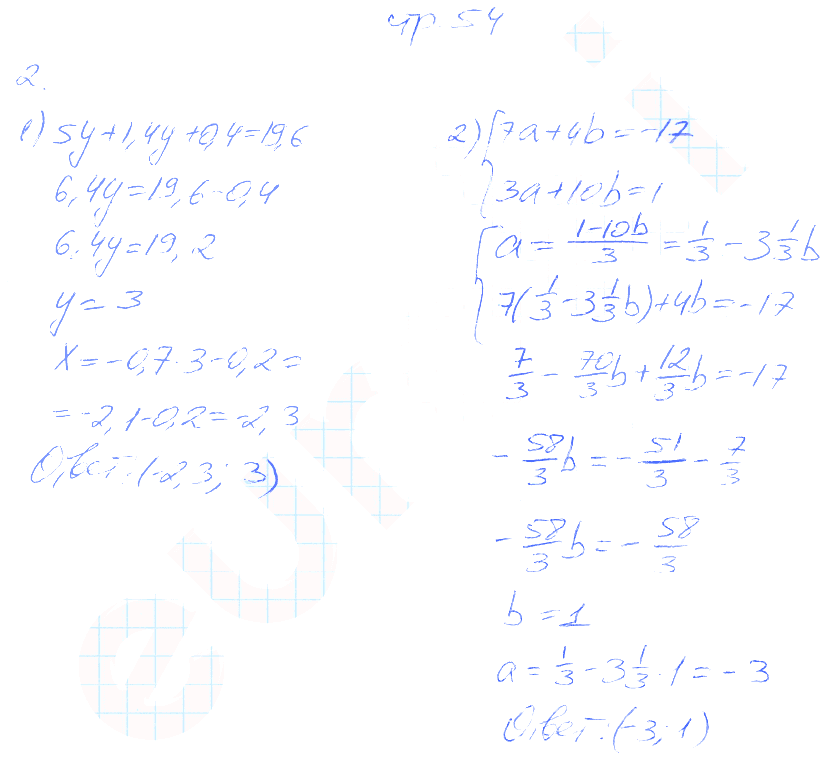 стр 54
2.
1) 5y+1,4y+0,4=19,6
6,4y=19,6-0,4
6.4y=19,2
y=3
x=-0,7·3-0,2=
=-2,1-0,2=-2,3
Ответ: (-2,3; 3)
2) {7a+4b=-17
3a+10b=1
{a = (1-10b)/3 = 1/3 - 3 1/3 b
7(1/3 - 3 1/3 b)+4b=-17
7/3 - 70/3 b + 12/3 b = -17
- 58/3 b = - 51/3 - 7/3
- 58/3 b = - 58/3
b = 1
a = 1/3 - 3 1/3 · 1 = -3
Ответ: (-3; 1)